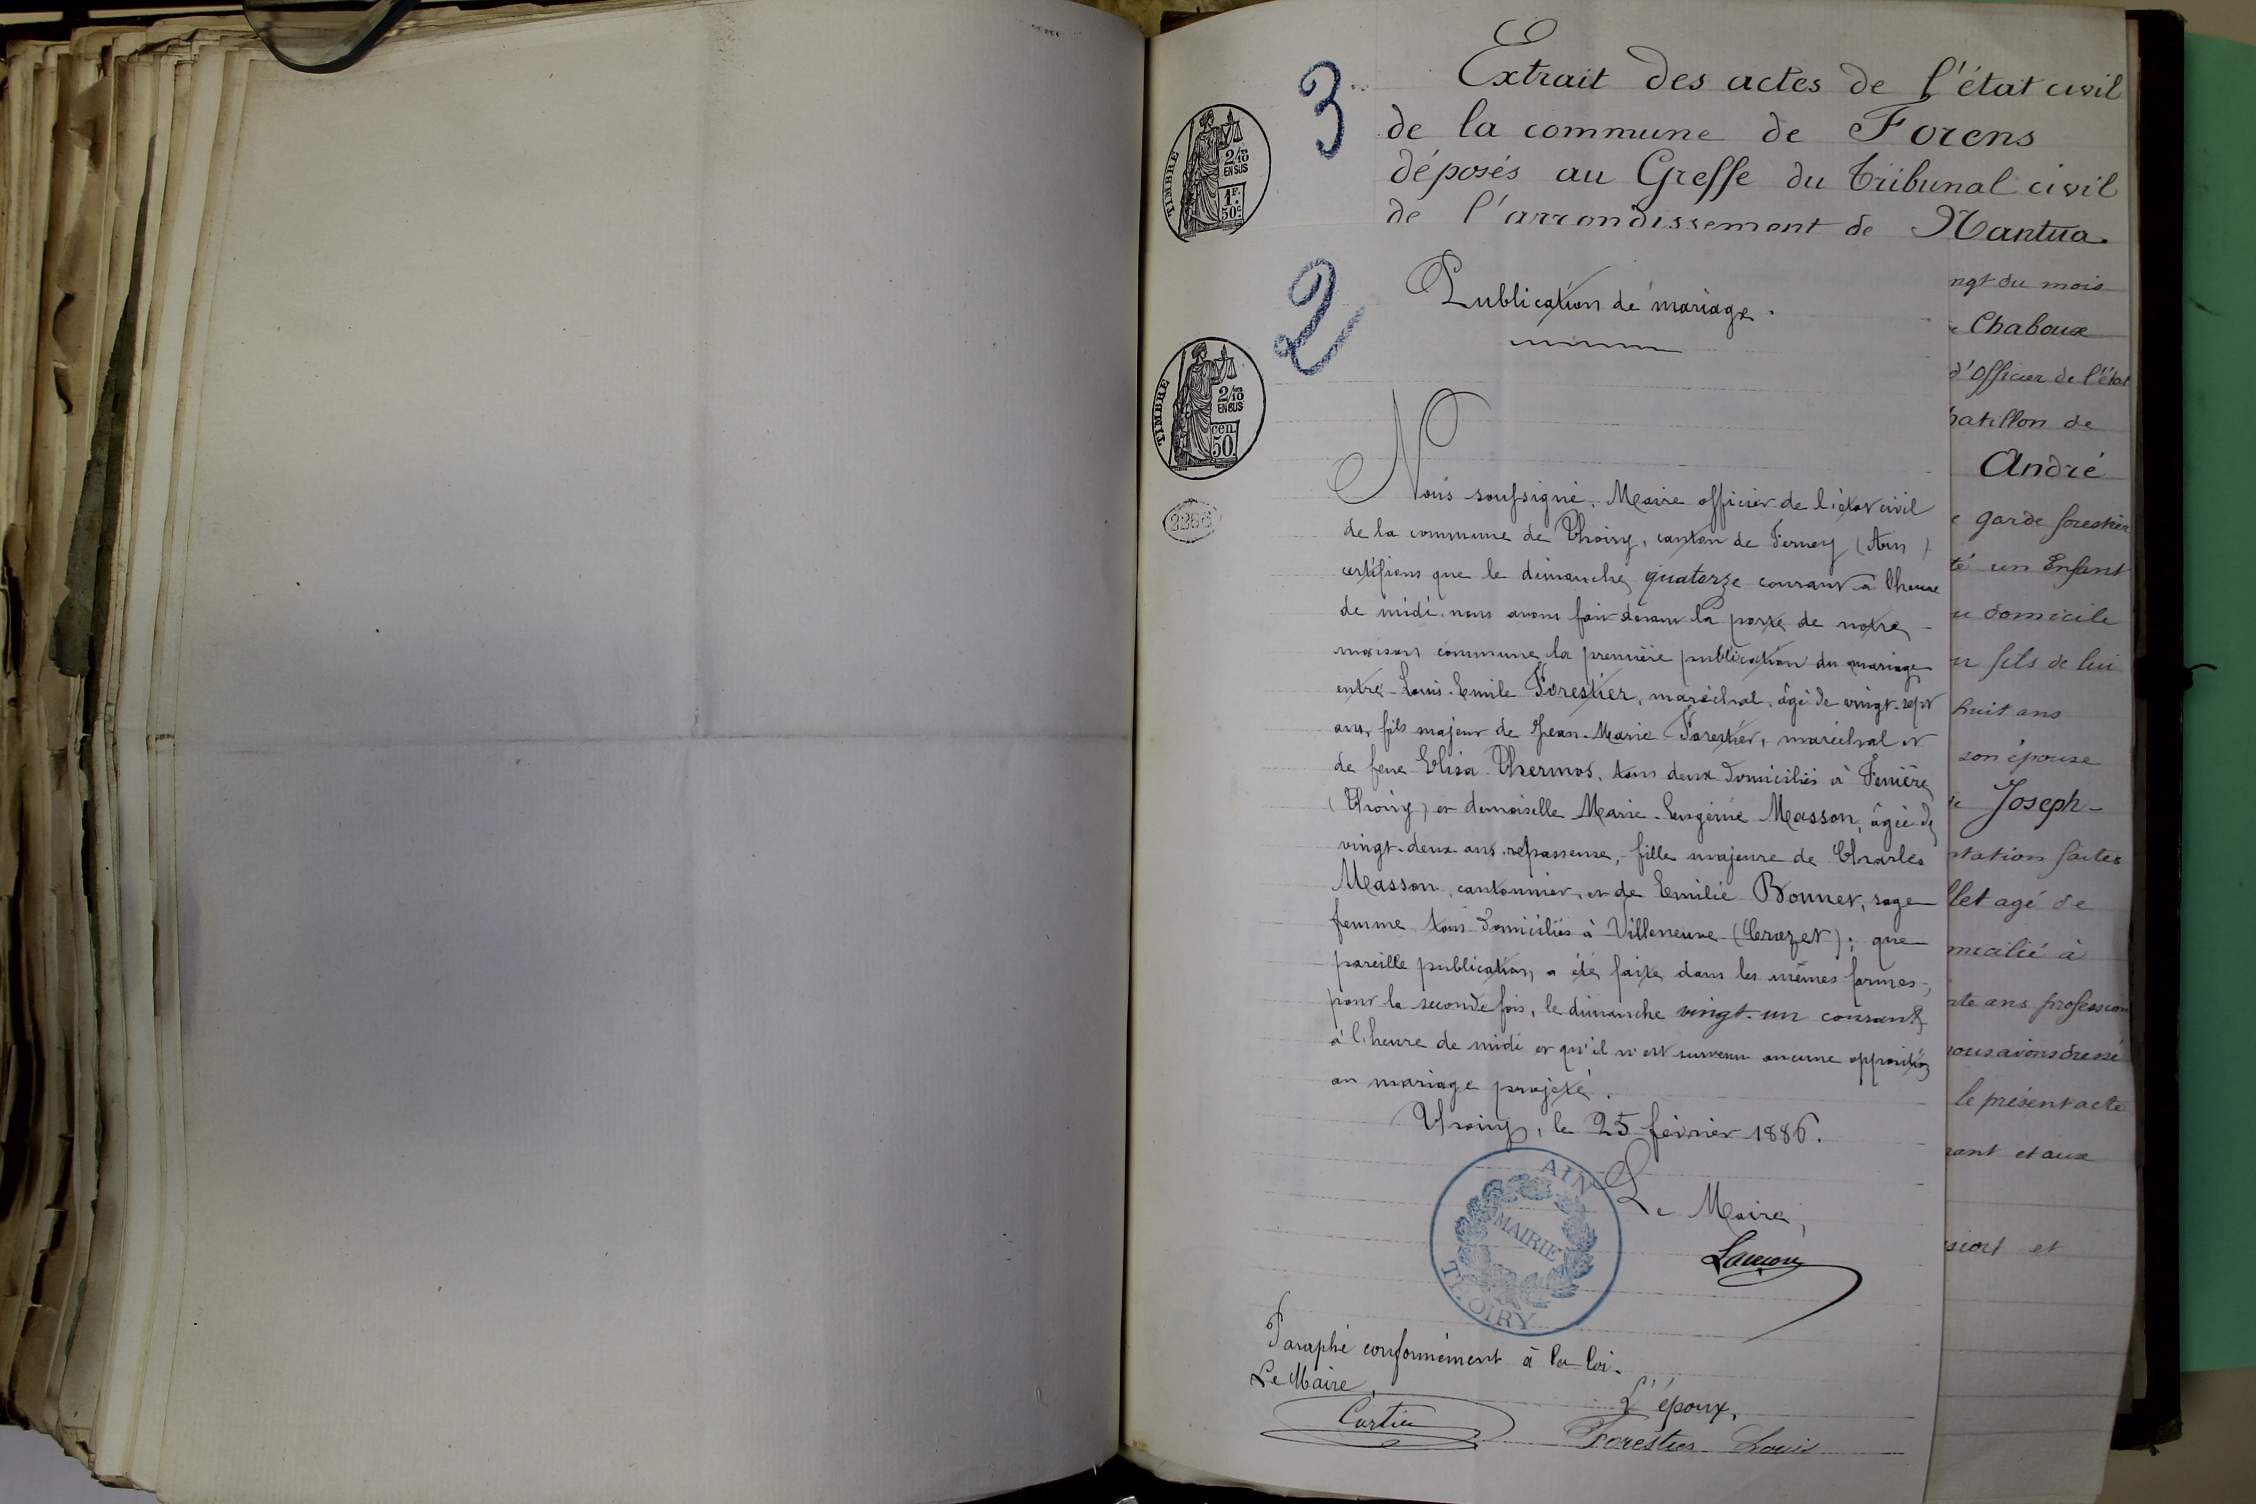 3
Extrait des actes de l'état civil
de la commune de Forens
déposés au Greffe du Tribunal civil
de l'arrondissement de Nantua.
TIMBRE
2/10
EN SUS
1F.
50c
2
Publication de mariage.
TIMBRE
2/10
EN SUS
cen.
50
Nous soussigné, Maire officier de l'état civil
de la commune de Thoiry, canton de Ferney (Ain)
certifions que le dimanche quatorze courant à l'heure
de midi, nous avons fait devant la porte de notre
maison commune la première publication du mariage
entre Louis Emile Forestier, maréchal, âgé de vingt-sept
ans, fils majeur de Jean-Marie Forestier, maréchal et
de feue Elisa Thermos, tous deux domiciliés à Fenière
(Thoiry) et demoiselle Marie-Eugénie Masson, âgée de
vingt-deux ans, repasseuse, fille majeure de Charles
Masson, cantonnier, et de Emilie Bonnet, sage
femme tous domiciliés à Villeneuve (Crozet); que
pareille publication, a été faite dans les mêmes formes,
pour la seconde fois, le dimanche vingt-un courant
à l'heure de midi et qu'il n'est survenu aucune opposition
au mariage projeté.
Thoiry, le 25 février 1886.
Le Maire,
AIN
MAIRIE
THOIRY
Paraphé conformément à la loi.
Le Maire,
L'époux,
Forestier Louis
ngt du mois
Chaboux
d'Officier de l'état
hatillon de
André
garde forestier
té un Enfant
u domicile
n fils de lui
huit ans
son épouse
Joseph-
ntation faites
llet agé de
micilié à
nte ans profession
nous avons dressé
le présent acte
rant et aux
et